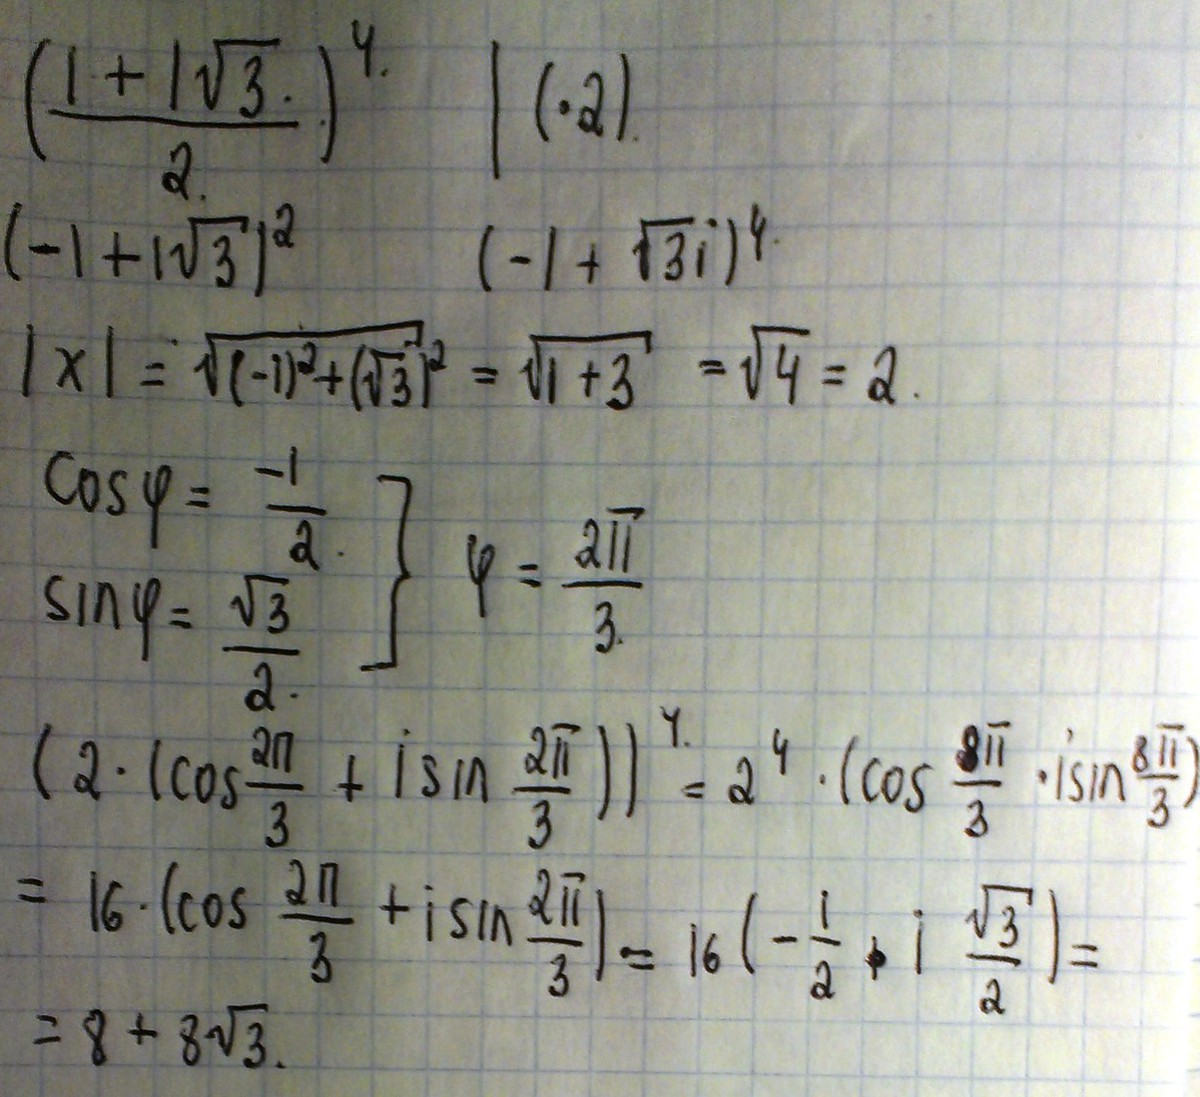 ((1 + i√3)/2)^4. | (·2).
(-1 + i√3)^2 (-1 + √3i)^4.
|x| = √((-1)^2 + (√3)^2) = √(1 + 3) = √4 = 2.
cosφ = -1/2. } φ = 2π/3.
sinφ = √3/2.
(2·(cos 2π/3 + i sin 2π/3))^4. = 2^4 · (cos 8π/3 · i sin 8π/3)
= 16·(cos 2π/3 + i sin 2π/3) = 16(-1/2 + i √3/2) =
= 8 + 8√3.